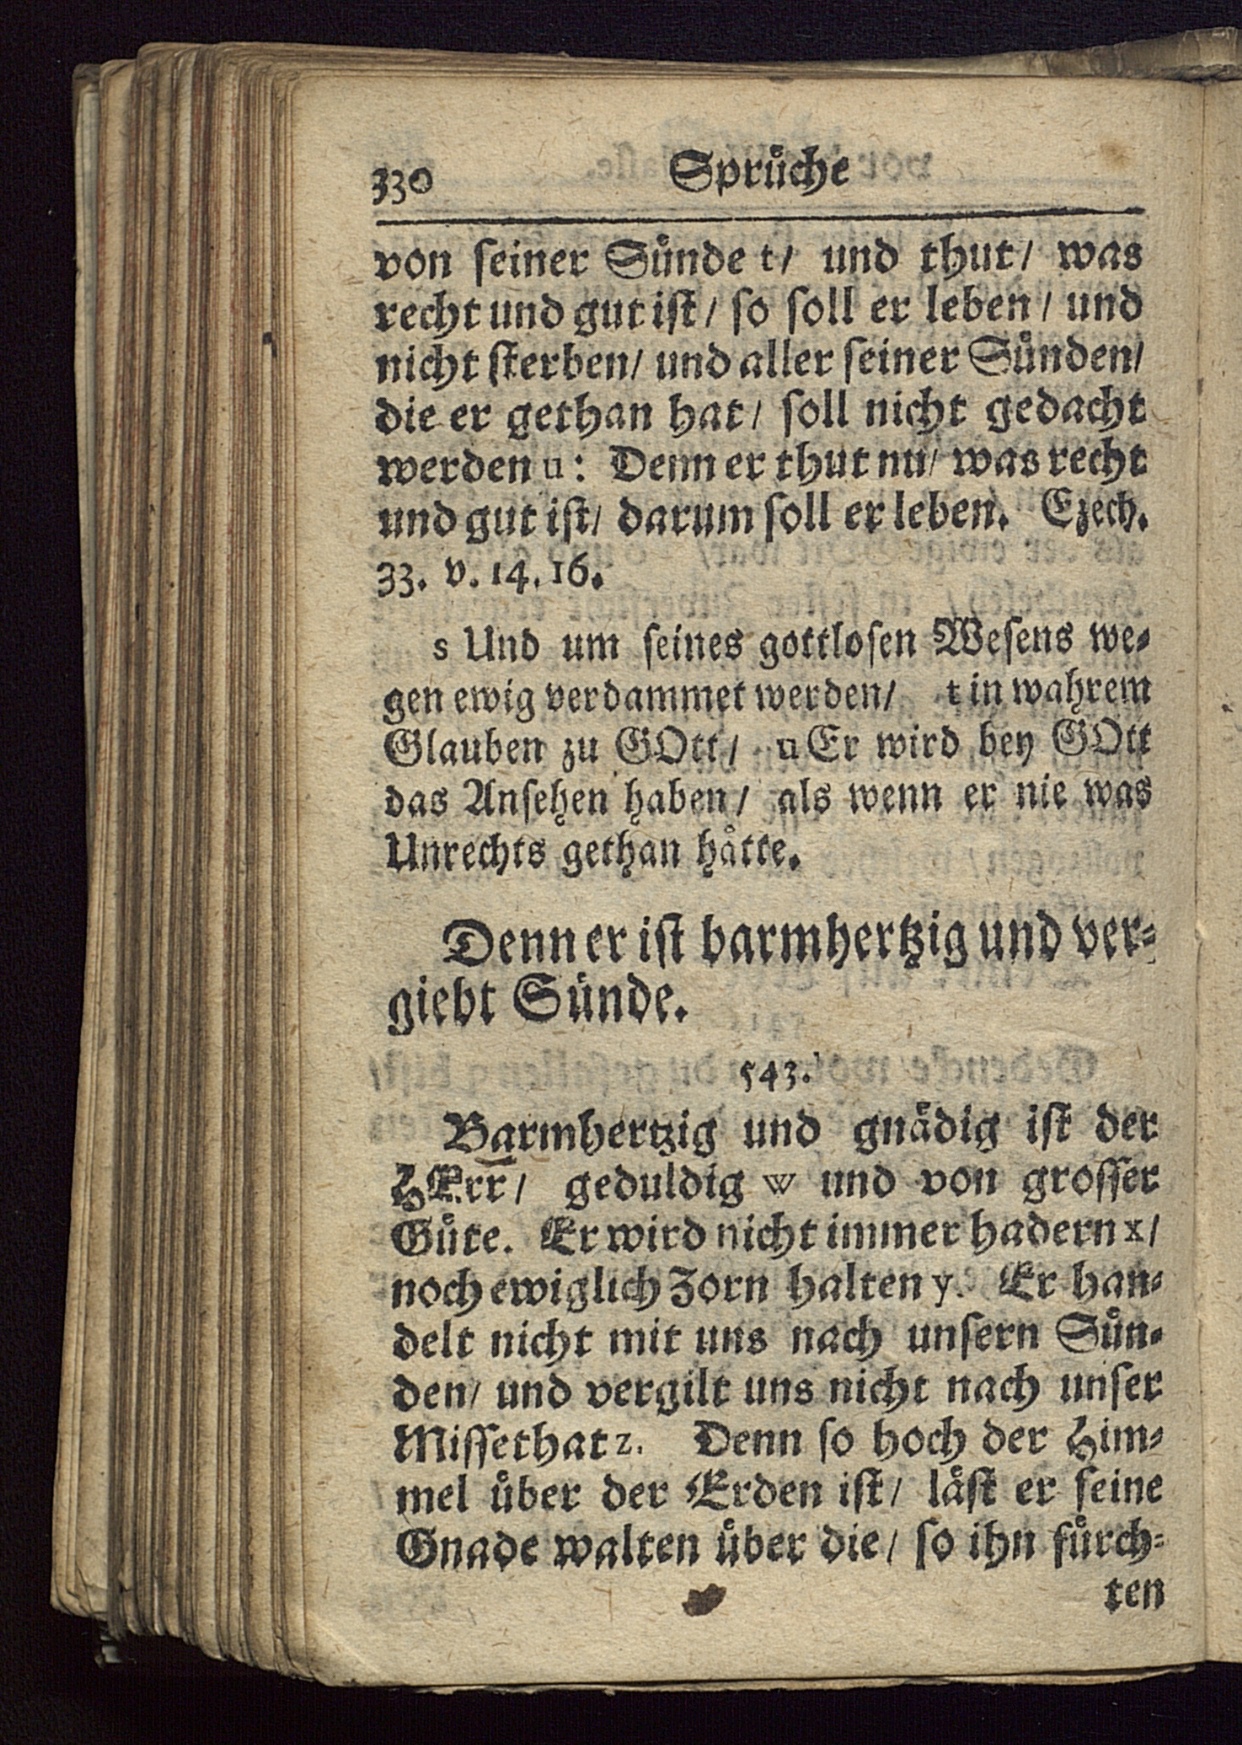 330 Sprüche
von seiner Sünde t/ und thut/ was
recht und gut ist/ so soll er leben/ und
nicht sterben/ und aller seiner Sünden/
die er gethan hat/ soll nicht gedacht
werden u: Denn er thut nu/ was recht
und gut ist/ darum soll er leben. Ezech.
33. v. 14. 16.
s Und um seines gottlosen Wesens we-
gen ewig verdammet werden/ t in wahrem
Glauben zu GOtt/ u Er wird bey GOtt
das Ansehen haben/ als wenn er nie was
Unrechts gethan hätte.
Denn er ist barmhertzig und ver-
giebt Sünde.
543.
Barmhertzig und gnädig ist der
HErr/ geduldig w und von grosser
Güte. Er wird nicht immer hadern x/
noch ewiglich Zorn halten y. Er han-
delt nicht mit uns nach unsern Sün-
den/ und vergilt uns nicht nach unser
Missethat z. Denn so hoch der Him-
mel über der Erden ist/ läst er seine
Gnade walten über die/ so ihn fürch-
ten